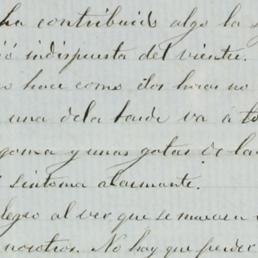 ha contribuido algo la
indispuesta del vientre.
hace como dos horas no
una de la tarde va á to
goma y unas gotas de la
sintoma alarmante.
legro al ver que se
nosotros. No hay que perder